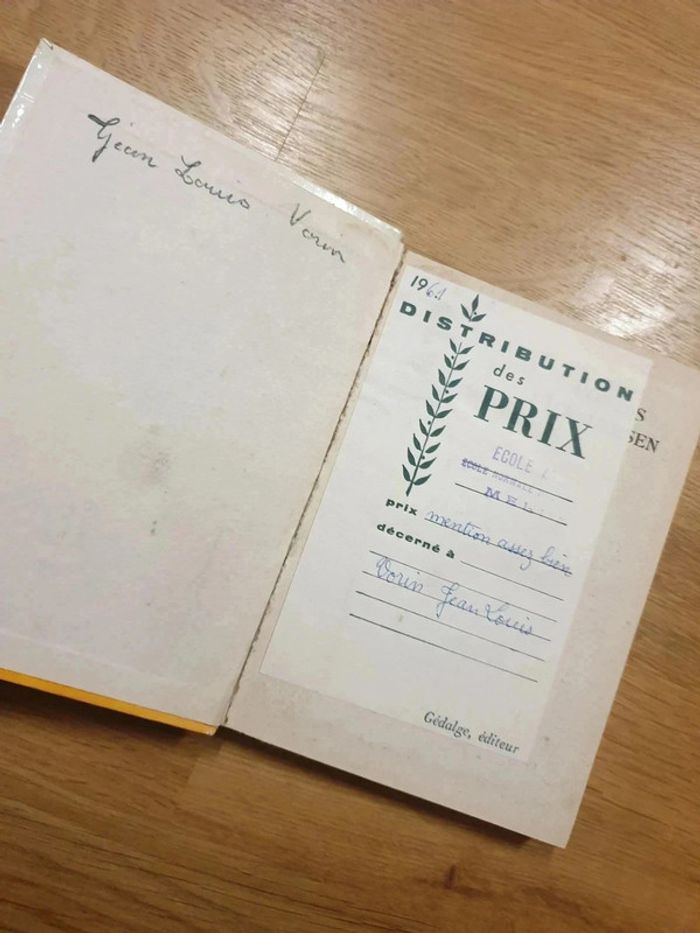 Jean Louis Vorin
1961
DISTRIBUTION
des
PRIX
S
SEN
ECOLE
ECOLE NORMALE
prix mention assez bien
décerné à
Vorin Jean Louis
Gédalge, éditeur